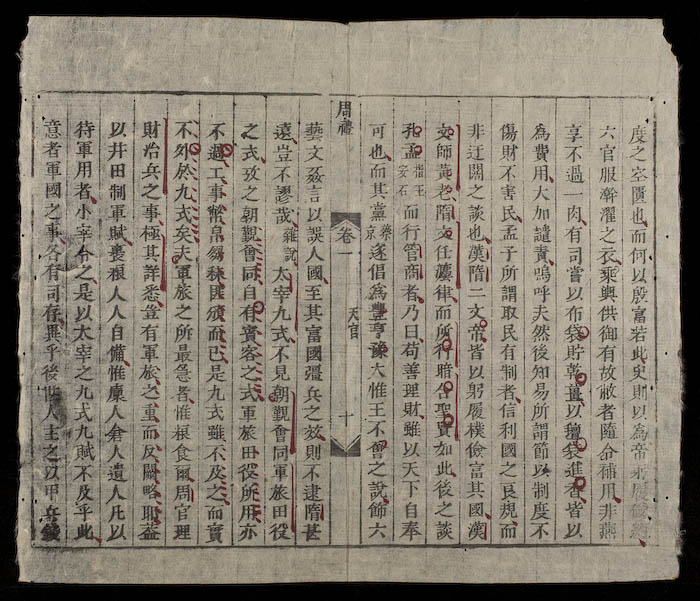 度之空匱也而何以殷富若此史則以為帝躬履儉約
六宮服澣濯之衣乘輿供御有故敝者隨令補用非燕
享不過一肉有司嘗以布袋貯乾薑以氊袋進香皆以
為費用大加譴責嗚呼夫然後知易所謂節以制度不
傷財不害民孟子所謂取民有制者信利國之良規而
非迂闊之談也漢隋二文帝皆以躬履樸儉富其國漢
文師黃老隋文任灋律而所行暗合聖賢如此後之談
孔孟指王安石而行管商者乃曰苟善理財雖以天下自奉
可也而其黨蔡京遂倡為豐亨豫大惟王不會之說飾六
周禮 卷一 天官 十
藝文姦言以誤人國至其富國彊兵之效則不逮隋甚
遠豈不謬哉雜說太宰九式不見朝覲會同軍旅田役
之式攷之朝覲會同自有賓客之式軍旅田役所用亦
不過工事幣帛芻秣匪頒而已是九式雖不及之而實
不外於九式矣夫軍旅之所最急者惟糧食爾周官理
財治兵之事極其詳悉豈有軍旅之重而反闕略耶葢
以井田制軍賦裹糧人人自備惟廩人倉人遺人凡以
待軍用者小宰分之是以太宰之九式九賦不及乎此
意者軍國之事各有司存異乎後世人主之以甲兵錢